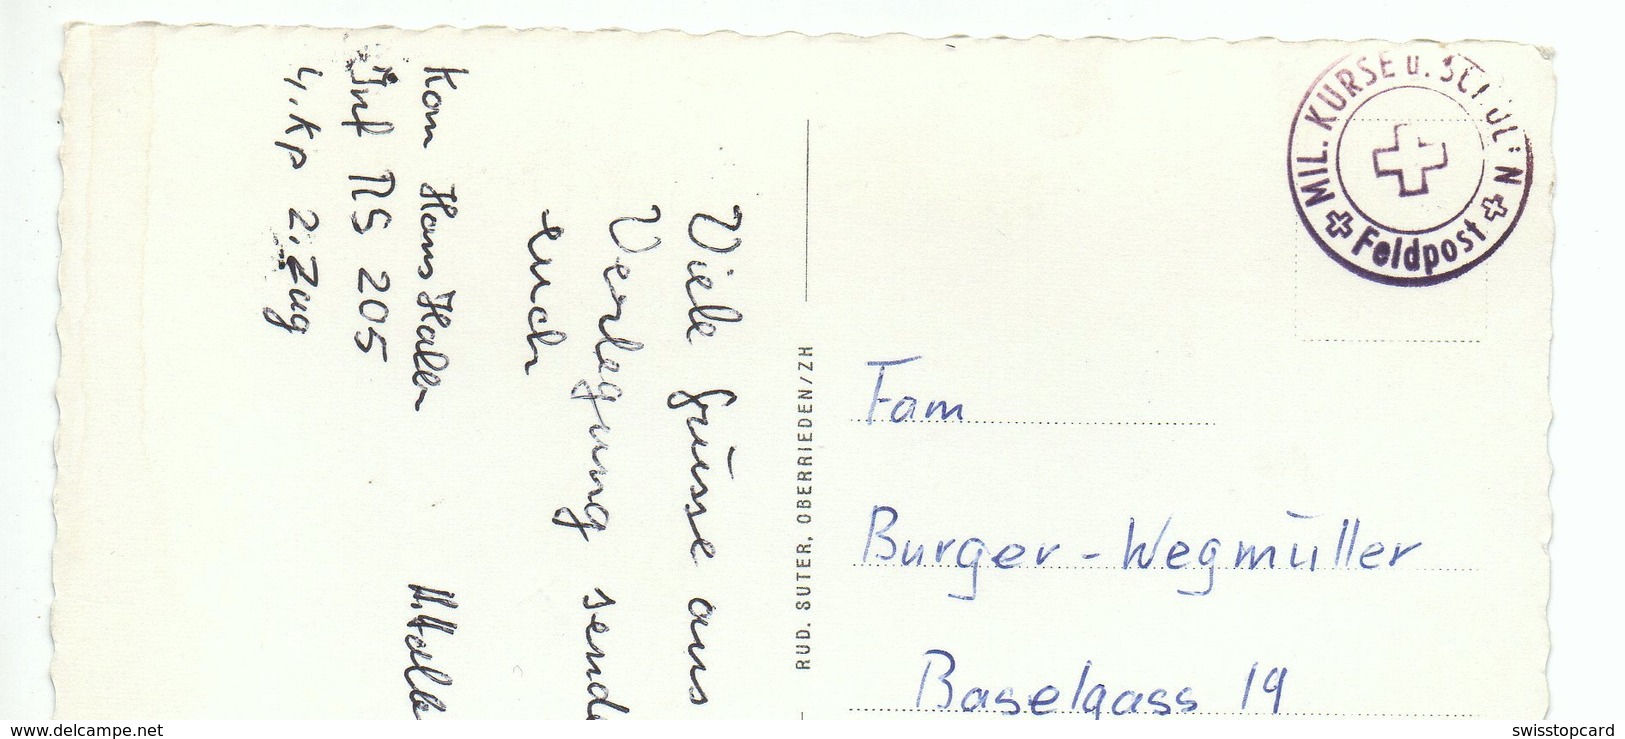 Kan Hans Haller
Inf RS 205
4. Kp 2. Zug
Viele Grüsse aus
Verlegung sende
euch
H. Halle
RUD. SUTER, OBERRIEDEN/ZH
MIL. KURSE u. SCHULEN
Feldpost
Fam
Burger-Wegmüller
Baselgass 19
swisstopcard